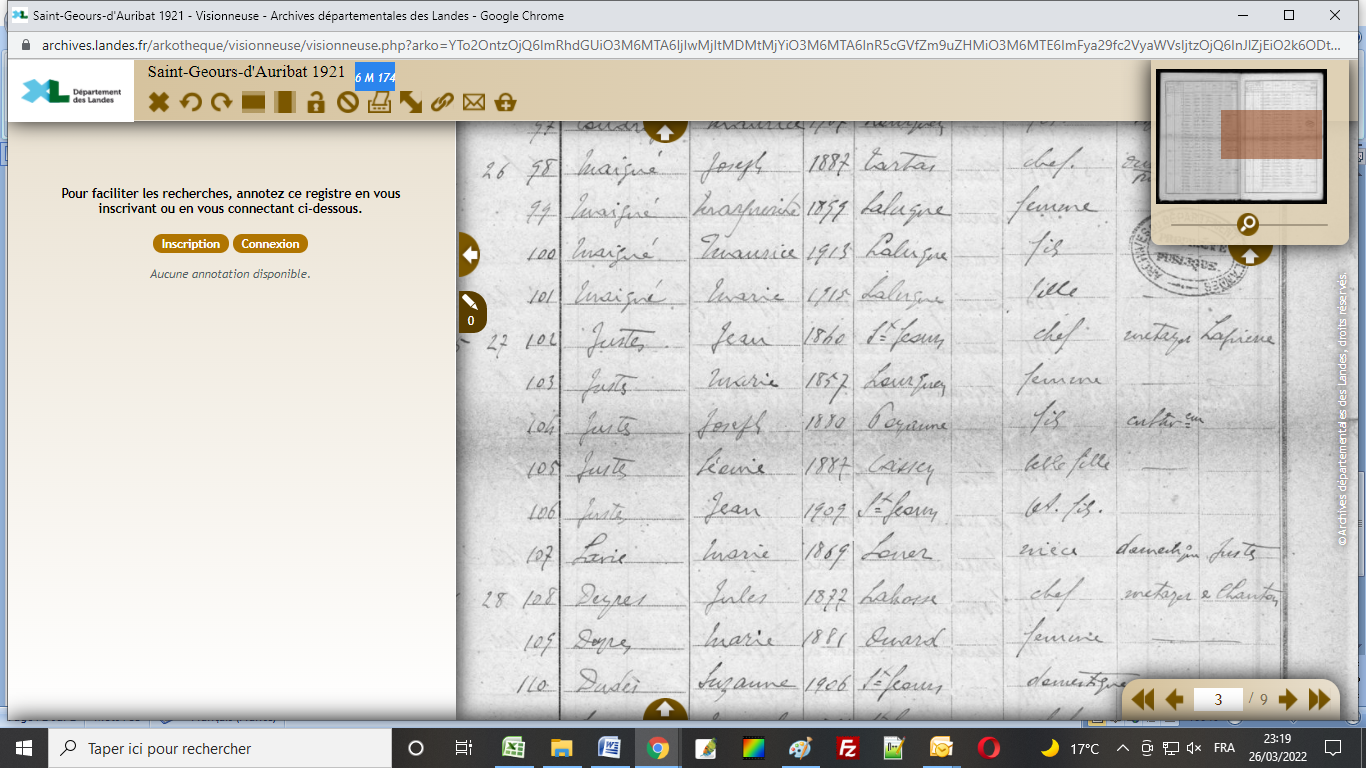 Saint-Geours-d'Auribat 1921 - Visionneuse - Archives départementales des Landes - Google Chrome
archives.landes.fr/arkotheque/visionneuse/visionneuse.php?arko=
Saint-Geours-d'Auribat 1921 6 M 174
Département
des Landes
Pour faciliter les recherches, annotez ce registre en vous
inscrivant ou en vous connectant ci-dessous.
Inscription Connexion
Aucune annotation disponible.
0
97
26 98 Maigné Joseph 1887 Tartas chef.
99 Maigné Marguerite 1899 Laluque femme
100 Maigné Maurice 1913 Laluque fils
101 Maigné Marie 1915 Laluque fille
27 102 Justes Jean 1860 St Geours chef métayer Lapierre
103 Justes Marie 1857 Lourquen femme
104 Justes Joseph 1880 Poyanne fils
105 Justes 1887 Cassen belle fille
106 Justes Jean 1909 St Geours pet. fils.
107 Marie 1869 Louer nièce domestique Justes
28 108 Deyres Jules 1877 Labosse chef métayer
109 Deyres Marie 1881 Onard femme
110 Suzanne 1906 St Geours domestique
PUBLIQUE.
©Archives départementales des Landes, droits réservés.
3 / 9
Taper ici pour rechercher
17°C
FRA
23:19
26/03/2022